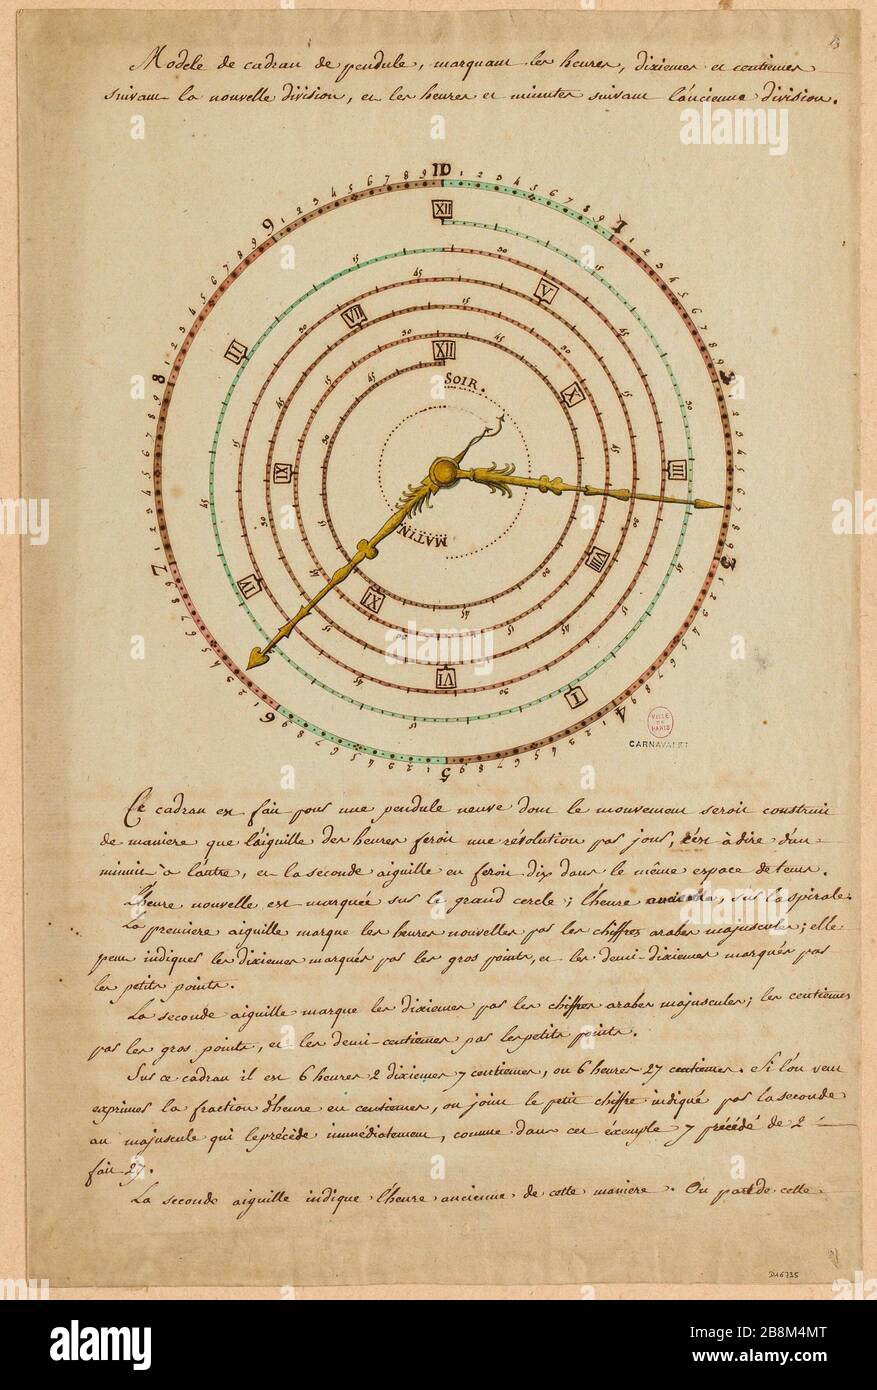 Modele de cadran de pendule, marquant les heures, dixiemes et centiemes
suivant la nouvelle division, et les heures et minutes suivant l'ancienne division.
10
XII
V
VII
II
XII
SOIR.
X
IX
III
MATIN.
VIII
IV
XI
VI
I
1
2
3
4
5
6
7
8
9
VILLE DE PARIS
CARNAVALET
Ce cadran est fait pour une pendule neuve dont le mouvement seroit construit
de maniere que l'aiguille des heures feroit une révolution par jour, c'est à dire d'un
minuit à l'autre, et la seconde aiguille en feroit dix dans le même espace de tems.
L'heure nouvelle est marquée sur le grand cercle; l'heure ancienne, sur la spirale.
La premiere aiguille marque les heures nouvelles par les chiffres arabes majuscules; elle
peut indiquer les dixiemes marqués par les gros points, et les demi-dixiemes marqués par
les petits points.
La seconde aiguille marque les dixiemes par les chiffres arabes majuscules; les centiemes
par les gros points, et les demi-centiemes par les petits points.
Sur ce cadran il est 6 heures 2 dixiemes 7 centiemes, ou 6 heures 27 centiemes. Si l'on veut
exprimer la fraction d'heure en centiemes, on joint le petit chiffre indiqué par la seconde
au majuscule qui le précède immédiatement, comme dans cet éxemple 7 précédé de 2
fait 27.
La seconde aiguille indique l'heure ancienne de cette maniere. On part de cette
D16735
alamy
Image ID: 2B8M4MT
www.alamy.com